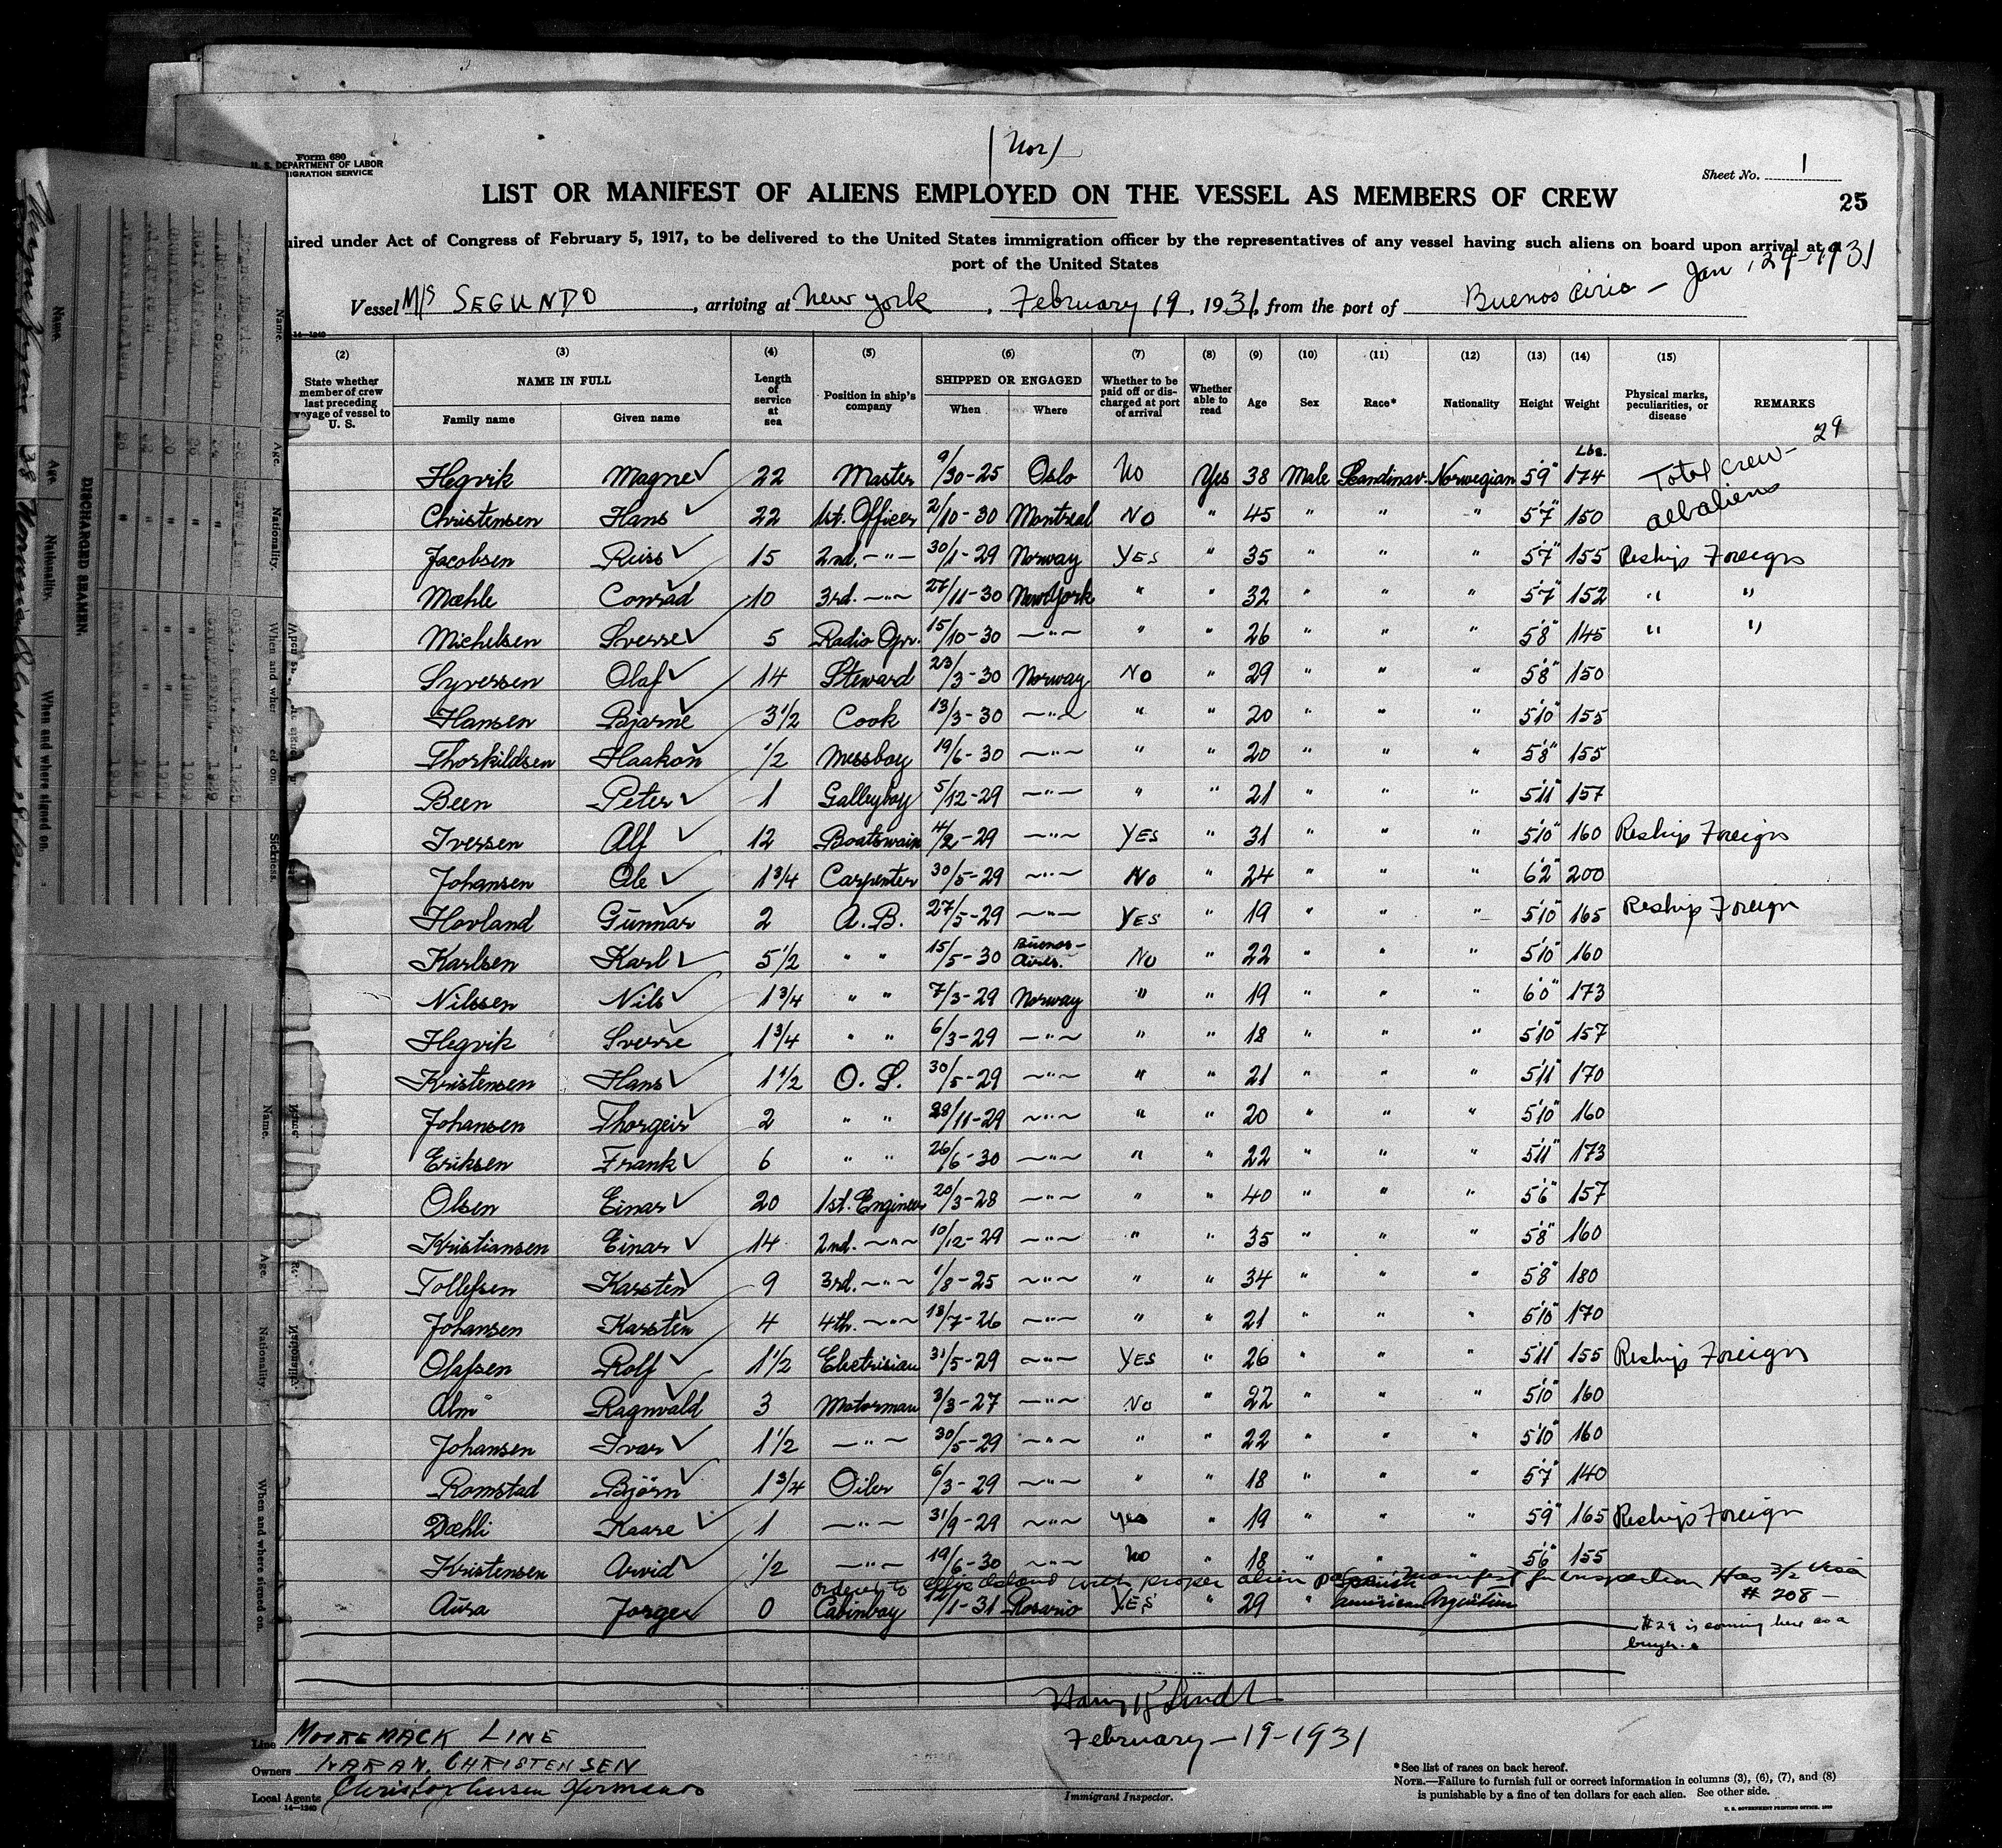 (Nor)
Form 680
U. S. DEPARTMENT OF LABOR
IGRATION SERVICE
Sheet No. 1
LIST OR MANIFEST OF ALIENS EMPLOYED ON THE VESSEL AS MEMBERS OF CREW
25
uired under Act of Congress of February 5, 1917, to be delivered to the United States immigration officer by the representatives of any vessel having such aliens on board upon arrival at a
port of the United States
Vessel M/S SEGUNDO, arriving at New York, February 19, 1931, from the port of Buenos Aires – Jan, 24-1931
(2) (3) (4) (5) (6) (7) (8) (9) (10) (11) (12) (13) (14) (15)
State whether member of crew last preceding voyage of vessel to U. S. NAME IN FULL Family name Given name Length of service at sea Position in ship's company SHIPPED OR ENGAGED When Where Whether to be paid off or discharged at port of arrival Whether able to read Age Sex Race* Nationality Height Weight Physical marks, peculiarities, or disease REMARKS
29
Lbs.
Hegvik Magne 22 Master 9/30-25 Oslo No Yes 38 Male Scandinav. Norwegian 5'9" 174 Total crew-
Christensen Hans 22 1st. Officer 2/10-30 Montreal No " 45 " " " 5'7" 150 all aliens
Jacobsen Reiss 15 2nd. -"- 30/1-29 Norway YES " 35 " " " 5'7" 155 Reship Foreign
Mæhle Conrad 10 3rd. -"- 27/11-30 New York " " 32 " " " 5'7" 152 " "
Michelsen Sverre 5 Radio Opr. 15/10-30 -"- " " 26 " " " 5'8" 145 " "
Syversen Olaf 14 Steward 23/3-30 Norway No " 29 " " " 5'8" 150
Hansen Bjarne 3 1/2 Cook 13/3-30 -"- " " 20 " " " 5'10" 155
Thorkildsen Haakon 1/2 Messboy 19/6-30 -"- " " 20 " " " 5'8" 155
Been Peter 1 Galleyboy 5/12-29 -"- " " 21 " " " 5'11" 157
Iversen Alf 12 Boatswain 4/2-29 -"- YES " 31 " " " 5'10" 160 Reship Foreign
Johansen Ole 1 3/4 Carpenter 30/5-29 -"- No " 24 " " " 6'2" 200
Hovland Gunnar 2 A.B. 27/5-29 -"- YES " 19 " " " 5'10" 165 Reship Foreign
Karlsen Karl 5 1/2 " " 15/5-30 Buenos-Aires. No " 22 " " " 5'10" 160
Nilssen Nils 1 3/4 " " 7/3-29 Norway " " 19 " " " 6'0" 173
Hegvik Sverre 1 3/4 " " 6/3-29 -"- " " 18 " " " 5'10" 157
Kristensen Hans 1 1/2 O. S. 30/5-29 -"- " " 21 " " " 5'11" 170
Johansen Thorgeir 2 " " 28/11-29 -"- " " 20 " " " 5'10" 160
Eriksen Frank 6 " " 26/6-30 -"- " " 22 " " " 5'11" 173
Olsen Einar 20 1st. Engineer 20/3-28 -"- " " 40 " " " 5'6" 157
Kristiansen Einar 14 2nd. -"- 10/12-29 -"- " " 35 " " " 5'8" 160
Tollefsen Karsten 9 3rd. -"- 1/8-25 -"- " " 34 " " " 5'8" 180
Johansen Karsten 4 4th. -"- 18/7-26 -"- " " 21 " " " 5'10" 170
Olafsen Rolf 1 1/2 Electrisian 31/5-29 -"- YES " 26 " " " 5'11" 155 Reship Foreign
Alm Ragnvald 3 Motorman 3/3-27 -"- No " 22 " " " 5'10" 160
Johansen Ivar 1 1/2 -"- 30/5-29 -"- " " 22 " " " 5'10" 160
Romstad Björn 1 3/4 Oiler 6/3-29 -"- " " 18 " " " 5'7" 140
Dæhli Kaare 1 -"- 31/9-29 -"- Yes " 19 " " " 5'9" 165 Reship Foreign
Kristensen Arvid 1/2 -"- 19/6-30 -"- No " 18 " " " 5'6" 155
ordered to Ellis Island with proper alien manifest for inspection Has 3/2 Visa
# 208 –
Aüra Jorge 0 Cabinboy 12/1-31 Rosario YES " 29 " Spanish American Argentine
#29 is coming here as a
buyer.
February-19-1931
Line MOOREMACK LINE
Owners CHRISTENSEN
Local Agents Christophersen Hermanos
14-1240
Immigrant Inspector.
*See list of races on back hereof.
NOTE.—Failure to furnish full or correct information in columns (3), (6), (7), and (8)
is punishable by a fine of ten dollars for each alien. See other side.
U. S. GOVERNMENT PRINTING OFFICE
DISCHARGED SEAMEN.
Name. Age. Nationality. When and where signed on.
Name. Age. Nationality. When and where signed on. Sickness.
Name. Age. Nationality When and where signed on.